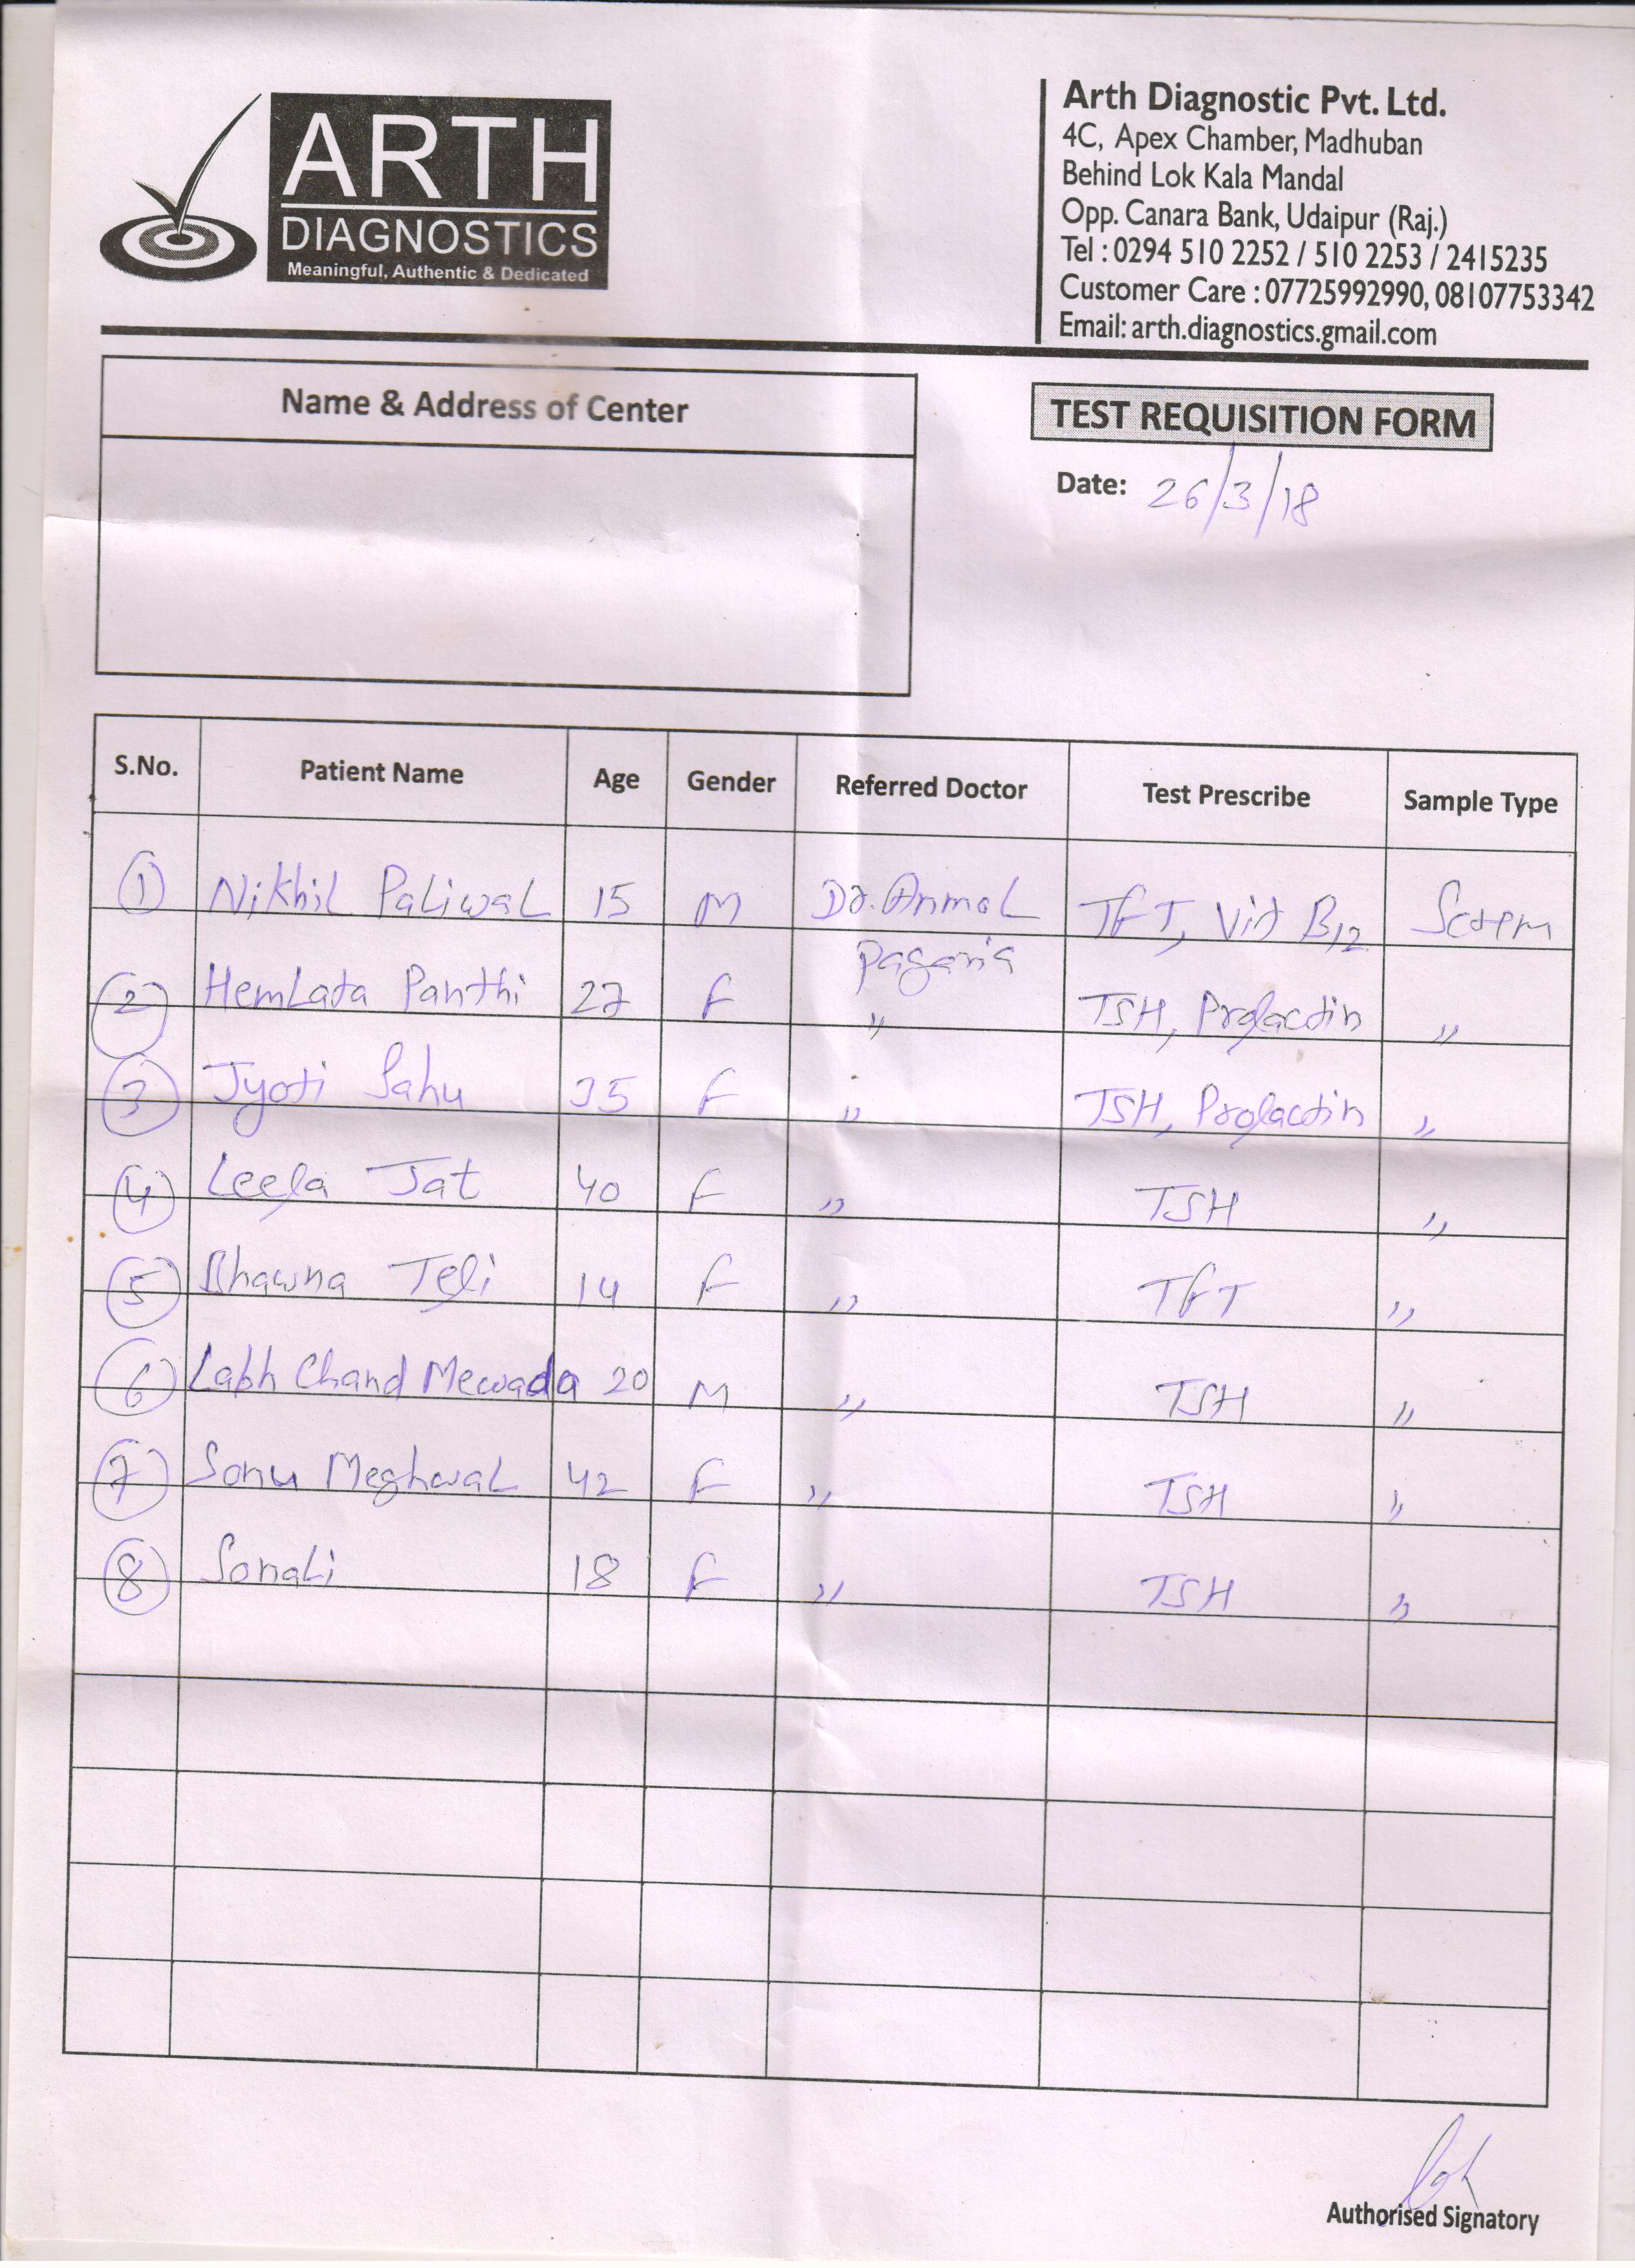 ARTH
DIAGNOSTICS
Meaningful, Authentic & Dedicated
Arth Diagnostic Pvt. Ltd.
4C, Apex Chamber, Madhuban
Behind Lok Kala Mandal
Opp. Canara Bank, Udaipur (Raj.)
Tel : 0294 510 2252 / 510 2253 / 2415235
Customer Care : 07725992990, 08107753342
Email: arth.diagnostics.gmail.com
Name & Address of Center
TEST REQUISITION FORM
Date: 26/3/18
S.No. Patient Name Age Gender Referred Doctor Test Prescribe Sample Type
1 Nikhil Paliwal 15 M Dr. Anmol TFT, Vit B12 Serum
pagaria
2 Hemlata Panthi 27 F " TSH, Prolactin "
3 Jyoti Sahu 35 F " TSH, Prolactin "
4 Leela Jat 40 F " TSH "
5 Bhawna Teli 14 F " TFT "
6 Labh Chand Mewada 20 M " TSH "
7 Sonu Meghwal 42 F " TSH "
8 Sonali 18 F " TSH "
Authorised Signatory